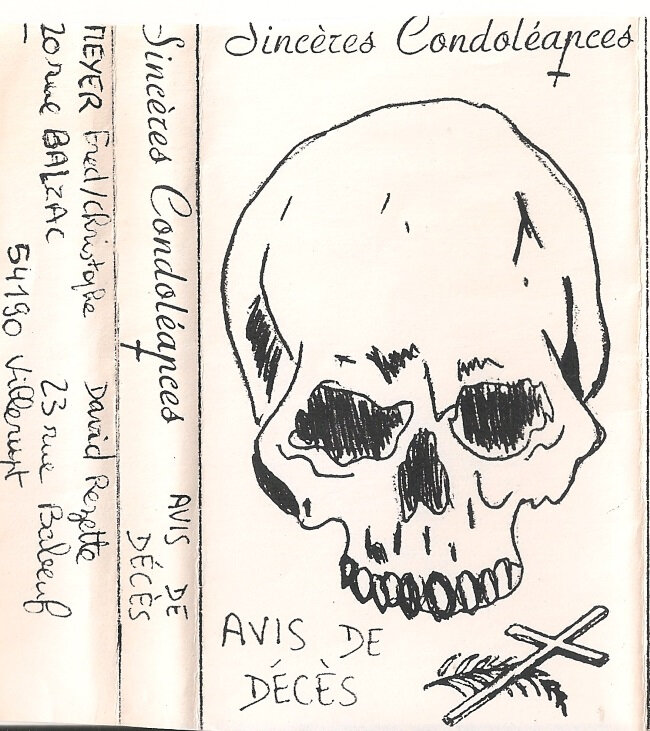 Sincères Condoléances
AVIS DE
DÉCÈS
Sincères Condoléances AVIS DE
DÉCÈS
MEYER Fred/Christophe David Rezette
20 rue BALZAC 23 rue Baboeuf
54190 Villerupt